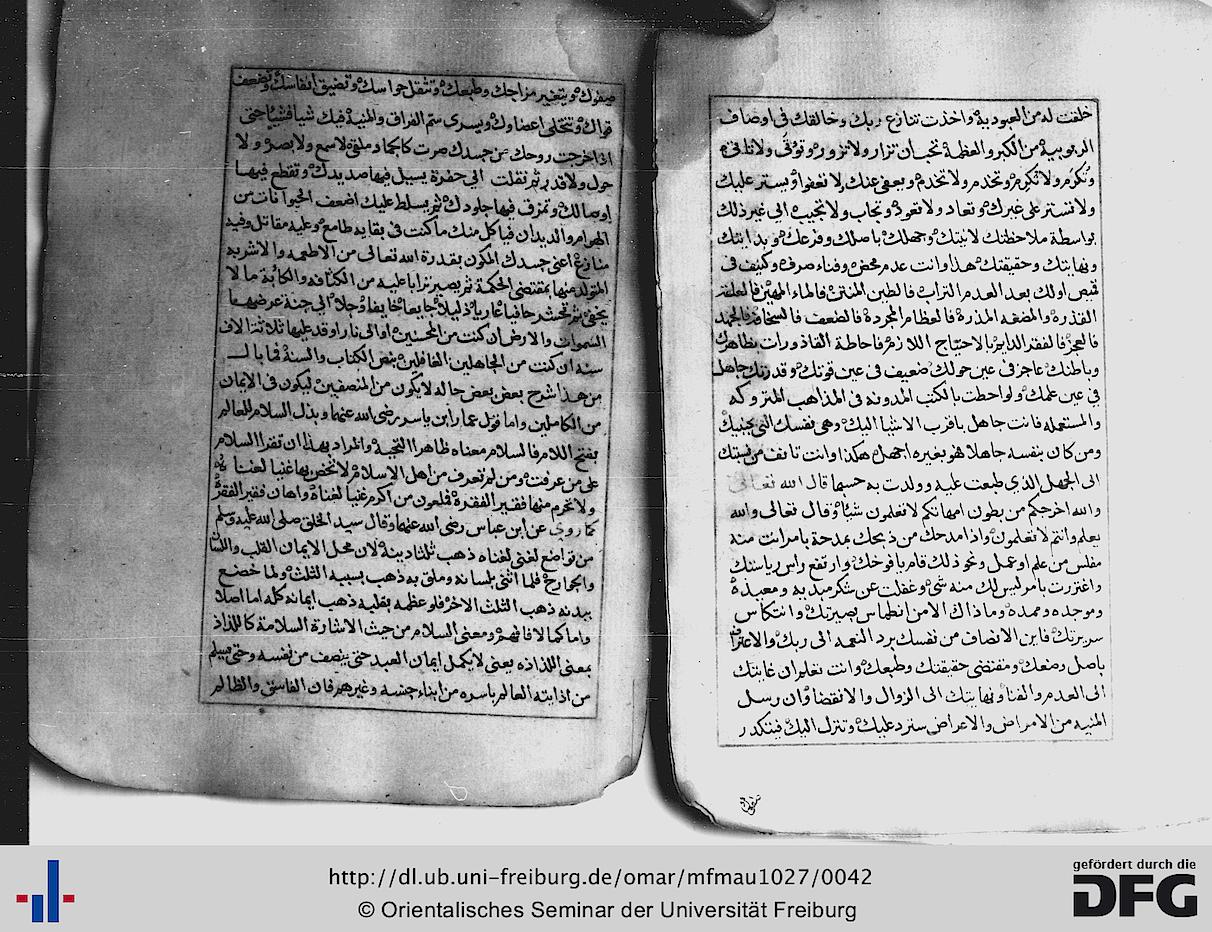 خلقت له من العبودية واخذت تنازع ربك وخالقك فى اوصاف
الربوبية من الكبر والعظمة تحب ان تزار ولا تزور وتوقى ولا
وتكرم ولا تكرم وتخدم ولا تخدم ويعفى عنك لا تعفوا ويستر عليك
ولا تستر على غيرك وتعاد ولا تعود وتجاب ولا تجيب الى غير ذلك
بواسطة ملاحظتك لانيتك وجهلك باصلك وفرعك وبدايتك
ونهايتك وحقيقتك هذا وانت عدم محض وفناء صرف وكنيف فى
قميص اولك بعد العدم التراب فالطين المنتن فالماء المهين فالعلقة
القذرة والمضغه المذرة فالعظام المجردة فالضعف فالسخافة فالجهد
فالعجز فالفقر الدايم بالاحتياج اللازم فاحاطة القاذورات بظاهرك
وباطنك عاجز فى عين حولك ضعيف فى عين قوتك وقدرتك جاهل
فى عين علمك ولو احطت بالكتب المدونه فى المذاهب المتروكه
والمستعمله فانت جاهل باقرب الاشيا اليك وهى نفسك التى بجنبيك
ومن كان بنفسه جاهلا فهو بغيره اجهل هكذا وانت تانف من نسبتك
الى الجهل الذى طبعت عليه وولدت به حسبما قال الله تعالى
والله اخرجكم من بطون امهاتكم لا تعلمون شيئا وقال تعالى والله
يعلم وانتم لا تعلمون واذا مدحك من ذبحك بمدحة بامر انت منه
مفلس من علم او عمل ونحو ذلك قام يافوخك وارتفع راس رياستك
واغتررت بامر ليس لك منه شى وغفلت عن شكر مبديه ومعيده
وموجده وممده وما ذاك الا من انطماس بصيرتك وانتكاس
سريرتك فاين الانصاف من نفسك برد النعمه الى ربك والاعتراف
باصل وضعك ومقتضى حقيقتك وطبعك وانت تعلم ان غايتك
الى العدم والفنا ونهايتك الى الزوال والانقضا وان رسل
المنيه من الامراض والاعراض سترد عليك وتنزل اليك فيتكدر
صفوك
صفوك ويتغير مزاجك وطبعك وتثقل حواسك وتضيق انفاسك وتضعف
قواك وتتخلى اعضاوك ويسرى سم الفراق والمنية فيك شيا فشيا حتى
اذا خرجت روحك من جسدك صرت كالجماد ملقى لا سمع ولا بصر ولا
حول ولا قدم ثم نقلت الى حفرة يسيل فيها صديدك وتقطع فيها
اوصالك وتمزق فيها جلودك ثم يسلط عليك اضعف الحيوانات من
الهوام والديدان فياكل منك ما كنت فى بقايه طامع وعليه مقاتل وفيه
منازع اعنى جسدك المكون بقدرة الله تعالى من الاطعمه والاشربه
المتولد منها بمقتضى الحكمة ثم يصير ترابا عليه من الكثافه والكآبة ما لا
يخفى ثم تحشر حافيا عاريا ذليلا جايعا خايفا وجلا الى جنة عرضها
السموات والارض ان كنت من المحسنين او الى نار اوقد عليها ثلاثة الاف
سنه ان كنت من الجاهلين الغافلين بنص الكتاب والسنة فما بال
من هذا شرح بعض بعض حاله لا يكون من المنصفين ليكون فى الايمان
من الكاملين واما قول عمار ابن ياسر رضى الله عنهما وبذل السلام للعالم
بفتح اللام فالسلام معناه ظاهرا التحية والمراد بهذا ان تقرا السلام
على من عرفت ومن لم تعرف من اهل الاسلام لا تخص بها غنيا لغناه
ولا تحرم منها فقيرا لفقره فلعون من اكرم غنيا لغناه واهان فقيرا لفقره
كما روى عن ابن عباس رضى الله عنهما وقال سيد الخلق صلى الله عليه وسلم
من تواضع لغنى لغناه ذهب ثلثا دينه لان محل الايمان القلب واللسان
والجوارح فلما اثنى بلسانه وملق به ذهب بسببه الثلث ولما خضع
ببدنه ذهب الثلث الاخر فلو عظمه بقلبه ذهب ايمانه كله اما اصلا
واما كمالا فافهم ومعنى السلام من حيث الاشارة السلامة كاللذاذ
بمعنى اللذاذه يعنى لا يكمل ايمان العبد حتى ينصف من نفسه وحتى يسلم
من اذايته العالم باسره من ابناء جنسه وغيرهم فان الفاسق والظالم
http://dl.ub.uni-freiburg.de/omar/mfmau1027/0042
© Orientalisches Seminar der Universität Freiburg
gefördert durch die
DFG